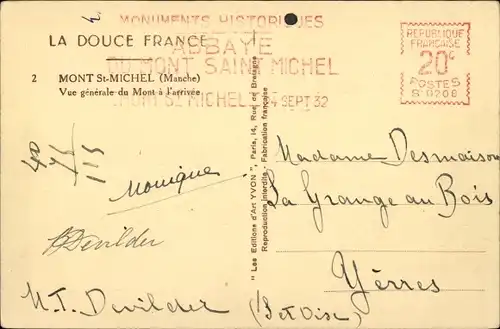 MONUMENTS HISTORIQUES
ABBAYE
DU MONT SAINT MICHEL
MONT ST MICHEL 4 SEPT 32
REPUBLIQUE
FRANCAISE
20c
POSTES
LA DOUCE FRANCE
2 MONT St-MICHEL (Manche)
Vue générale du Mont à l'arrivée
40
75
115
Monique
Devilder
M.T. Devilder
" Les Editions d'Art YVON ", Paris, 14, Rue de Bretagne
Reproduction interdite - Fabrication française
Madame Desmaison
La Grange au Bois
Yèrres
(S et Oise)